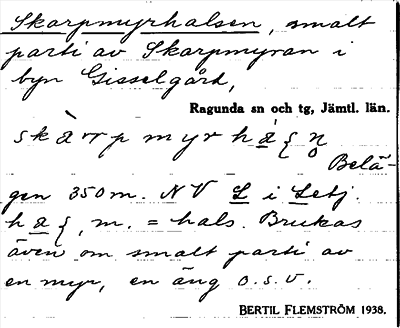 Skarpmyrhalsen, smalt
parti av Skarpmyran i
byn Gisselgård,
Ragunda sn och tg, Jämtl. län.
Belä-
gen 350m. NV L i Letj.
m. = hals. Brukas
även om smalt parti av
en myr, en äng o.s.v.
BERTIL FLEMSTRÖM 1938.